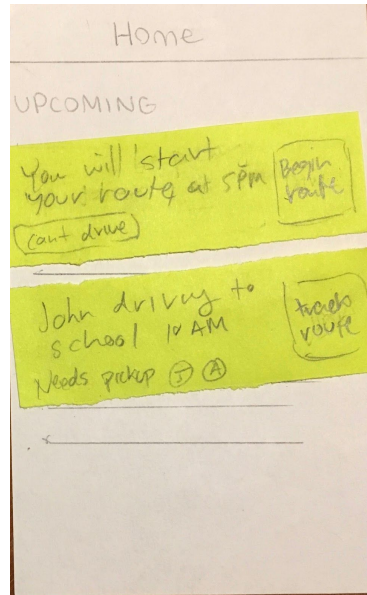 Home
UPCOMING
You will start
your route at 5PM
Begin
route
can't drive
John drivng to
school 10 AM
track
route
Needs pickup J A